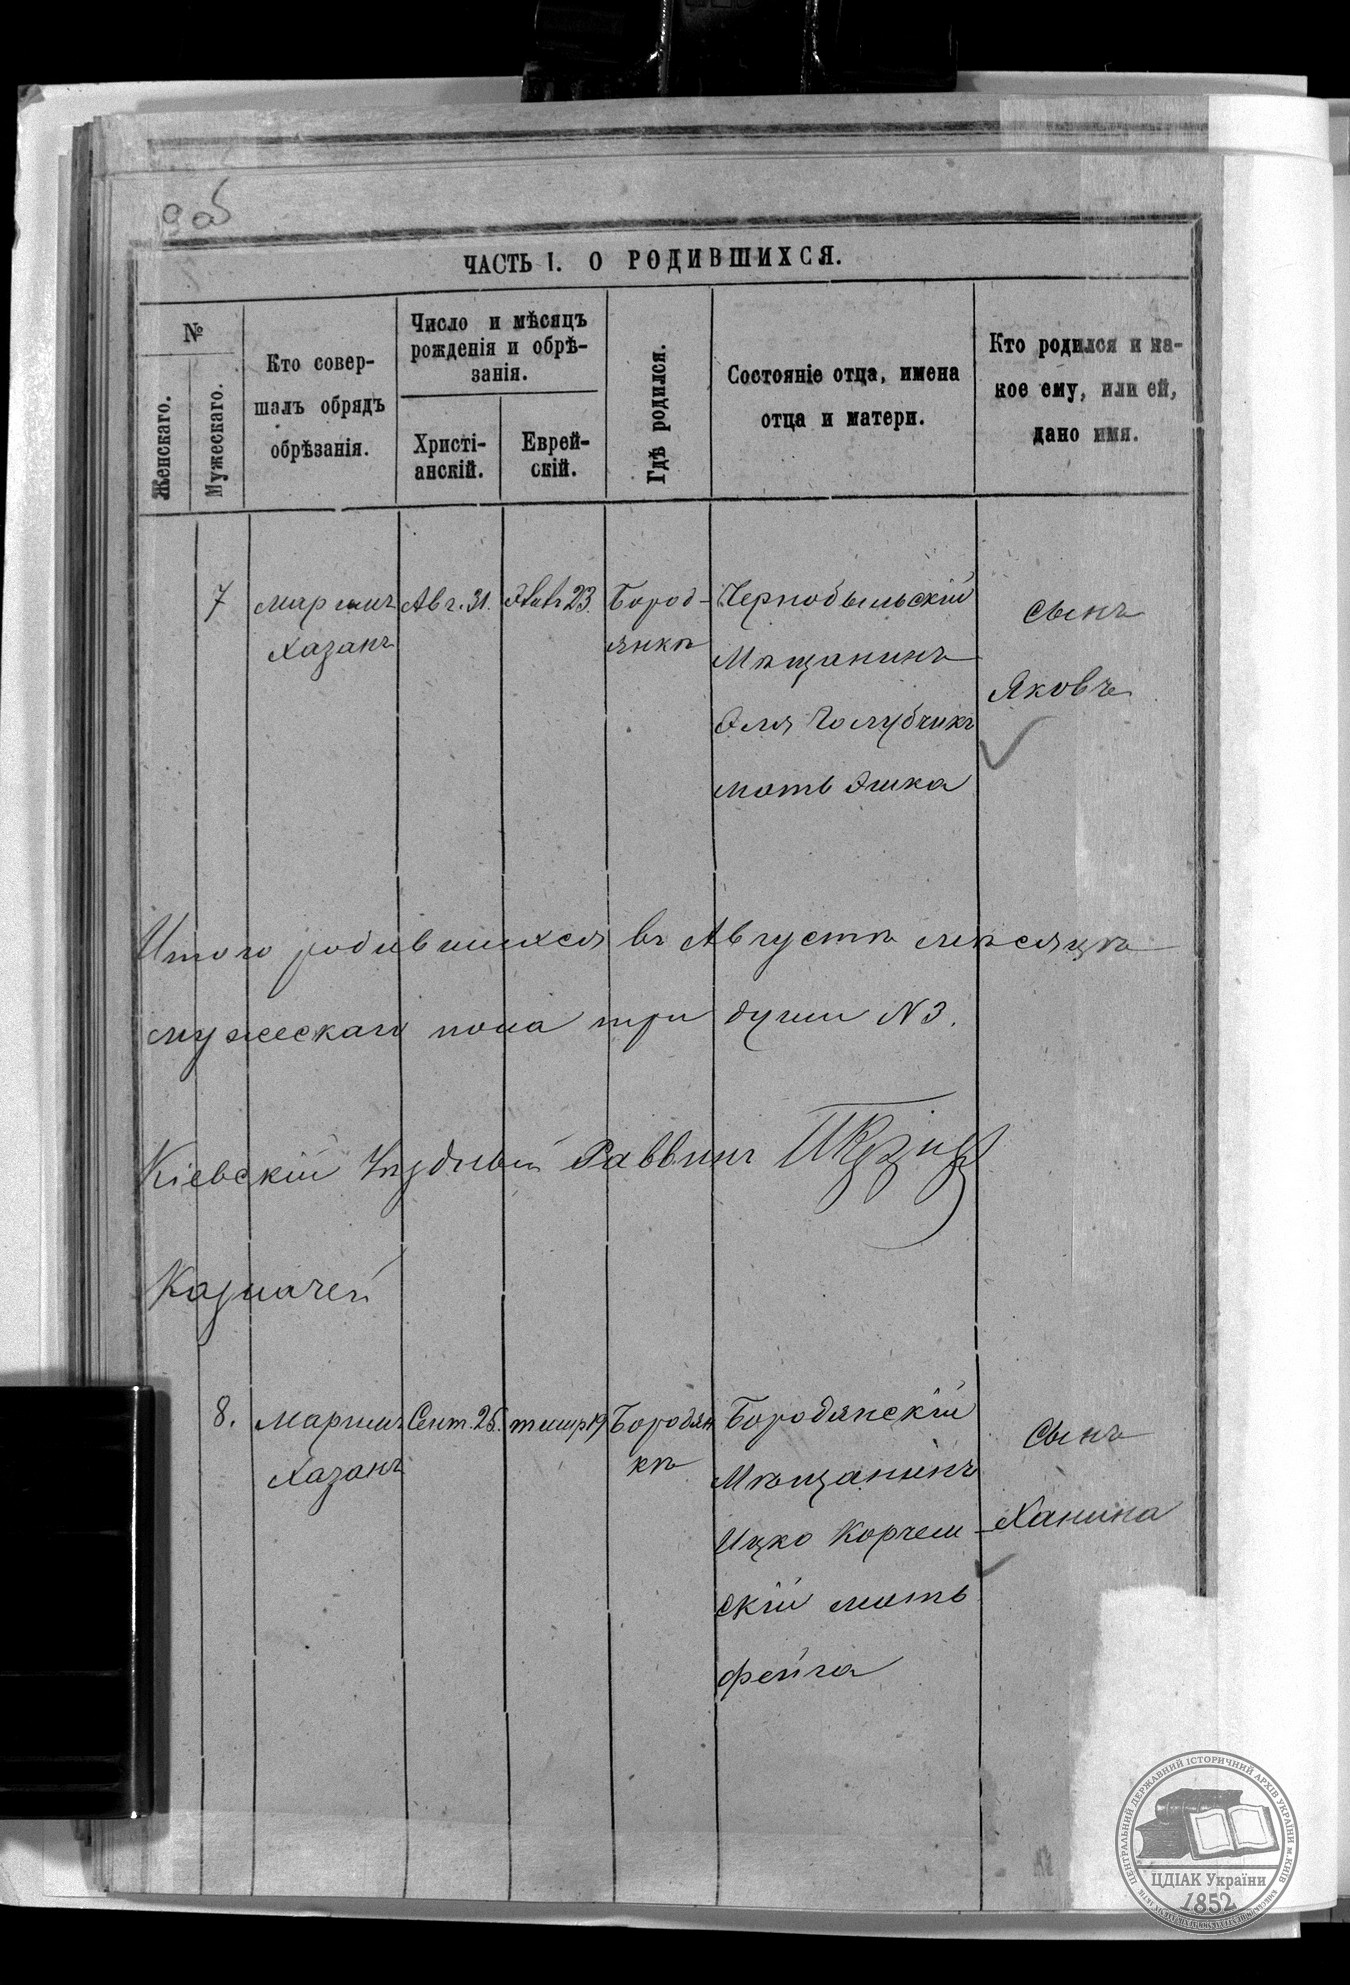 9 об
ЧАСТЬ I. О РОДИВШИХСЯ.
№
Женскаго.
Мужескаго.
Кто совер-
шалъ обрядъ
обрѣзанія.
Число и мѣсяцъ
рожденія и обрѣ-
занія.
Христі-
анскій.
Еврей-
скій.
Гдѣ родился.
Состояніе отца, имена
отца и матери.
Кто родился и ка-
кое ему, или ей,
дано имя.
7
Хазанъ
Авг. 31.
23.
Бород-
янкѣ
Чернобыльскій
Мѣщанинъ
Эля Голубчикъ
мать
сынъ
Яковъ
Итого родившихся въ Августѣ мѣсяцѣ
мужескаго пола три души N 3.
Кіевскій Уѣздный Раввинъ
Казначей
8.
Хазанъ
Сент. 25.
тишр 19
Бородян
кѣ
Бородянскій
Мѣщанинъ
Ицко Корчем-
скій мать
Фейга
сынъ
Ханина
ЦЕНТРАЛЬНИЙ ДЕРЖАВНИЙ ІСТОРИЧНИЙ АРХІВ УКРАЇНИ м.КИЇВ
ЦДІАК України
1852